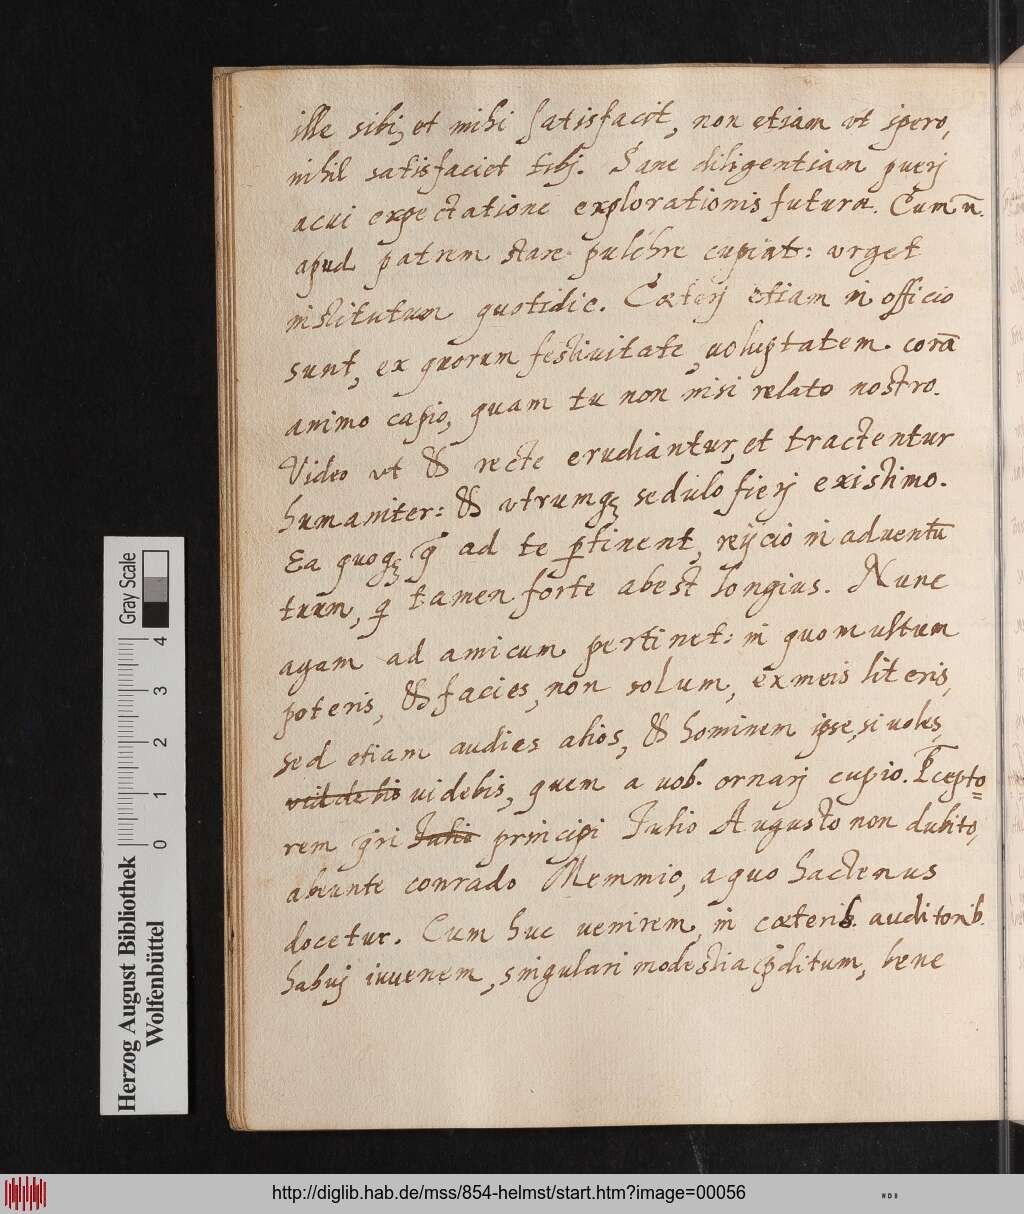 ille sibi, et mihi satisfacit, non etiam vt spero,
nihil satisfaciet tibj. Sane diligentiam puerj
acui expectatione explorationis futuræ. Cum n̄.
apud patrem stare pulchre cupiat: vrget
institutum quotidie. Cœterj etiam in officio
sunt, ex quorum festiuitate, uoluptatem corā
animo capio, quam tu non nisi relato nostro.
Video vt & recte erudiantur, et tractentur
humaniter: & vtrumqꝫ sedulo fierj existimo.
Ea quoqꝫ q̄ ad te ꝑtinent, reijcio in aduentū
tuum, q̄ tamen forte abest longius. Nunc
agam ad amicum pertinet: in quo multum
poteris, & facies, non solum, ex meis literis,
sed etiam audies alios, & hominem ipse, si uoles,
videbis uidebis, quem a uob. ornarj cupio. P̄cepto=
rem q̄ri Julio principi Julio Augusto non dubito,
abeunte conrado Memmio, a quo hactenus
docetur. Cum huc uenirem, in cœterib. auditorib.
habuj iuuenem, singulari modestia p̄ditum, bene
Herzog August Bibliothek
Wolfenbüttel
0 1 2 3 4
Gray Scale
http://diglib.hab.de/mss/854-helmst/start.htm?image=00056
WDB